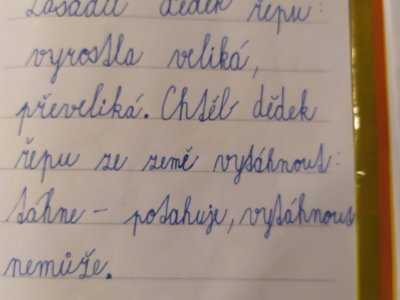 Zasadil dědek řepu:
vyrostla veliká,
převeliká. Chtěl dědek
řepu ze země vytáhnout:
táhne – potahuje, vytáhnout
nemůže.